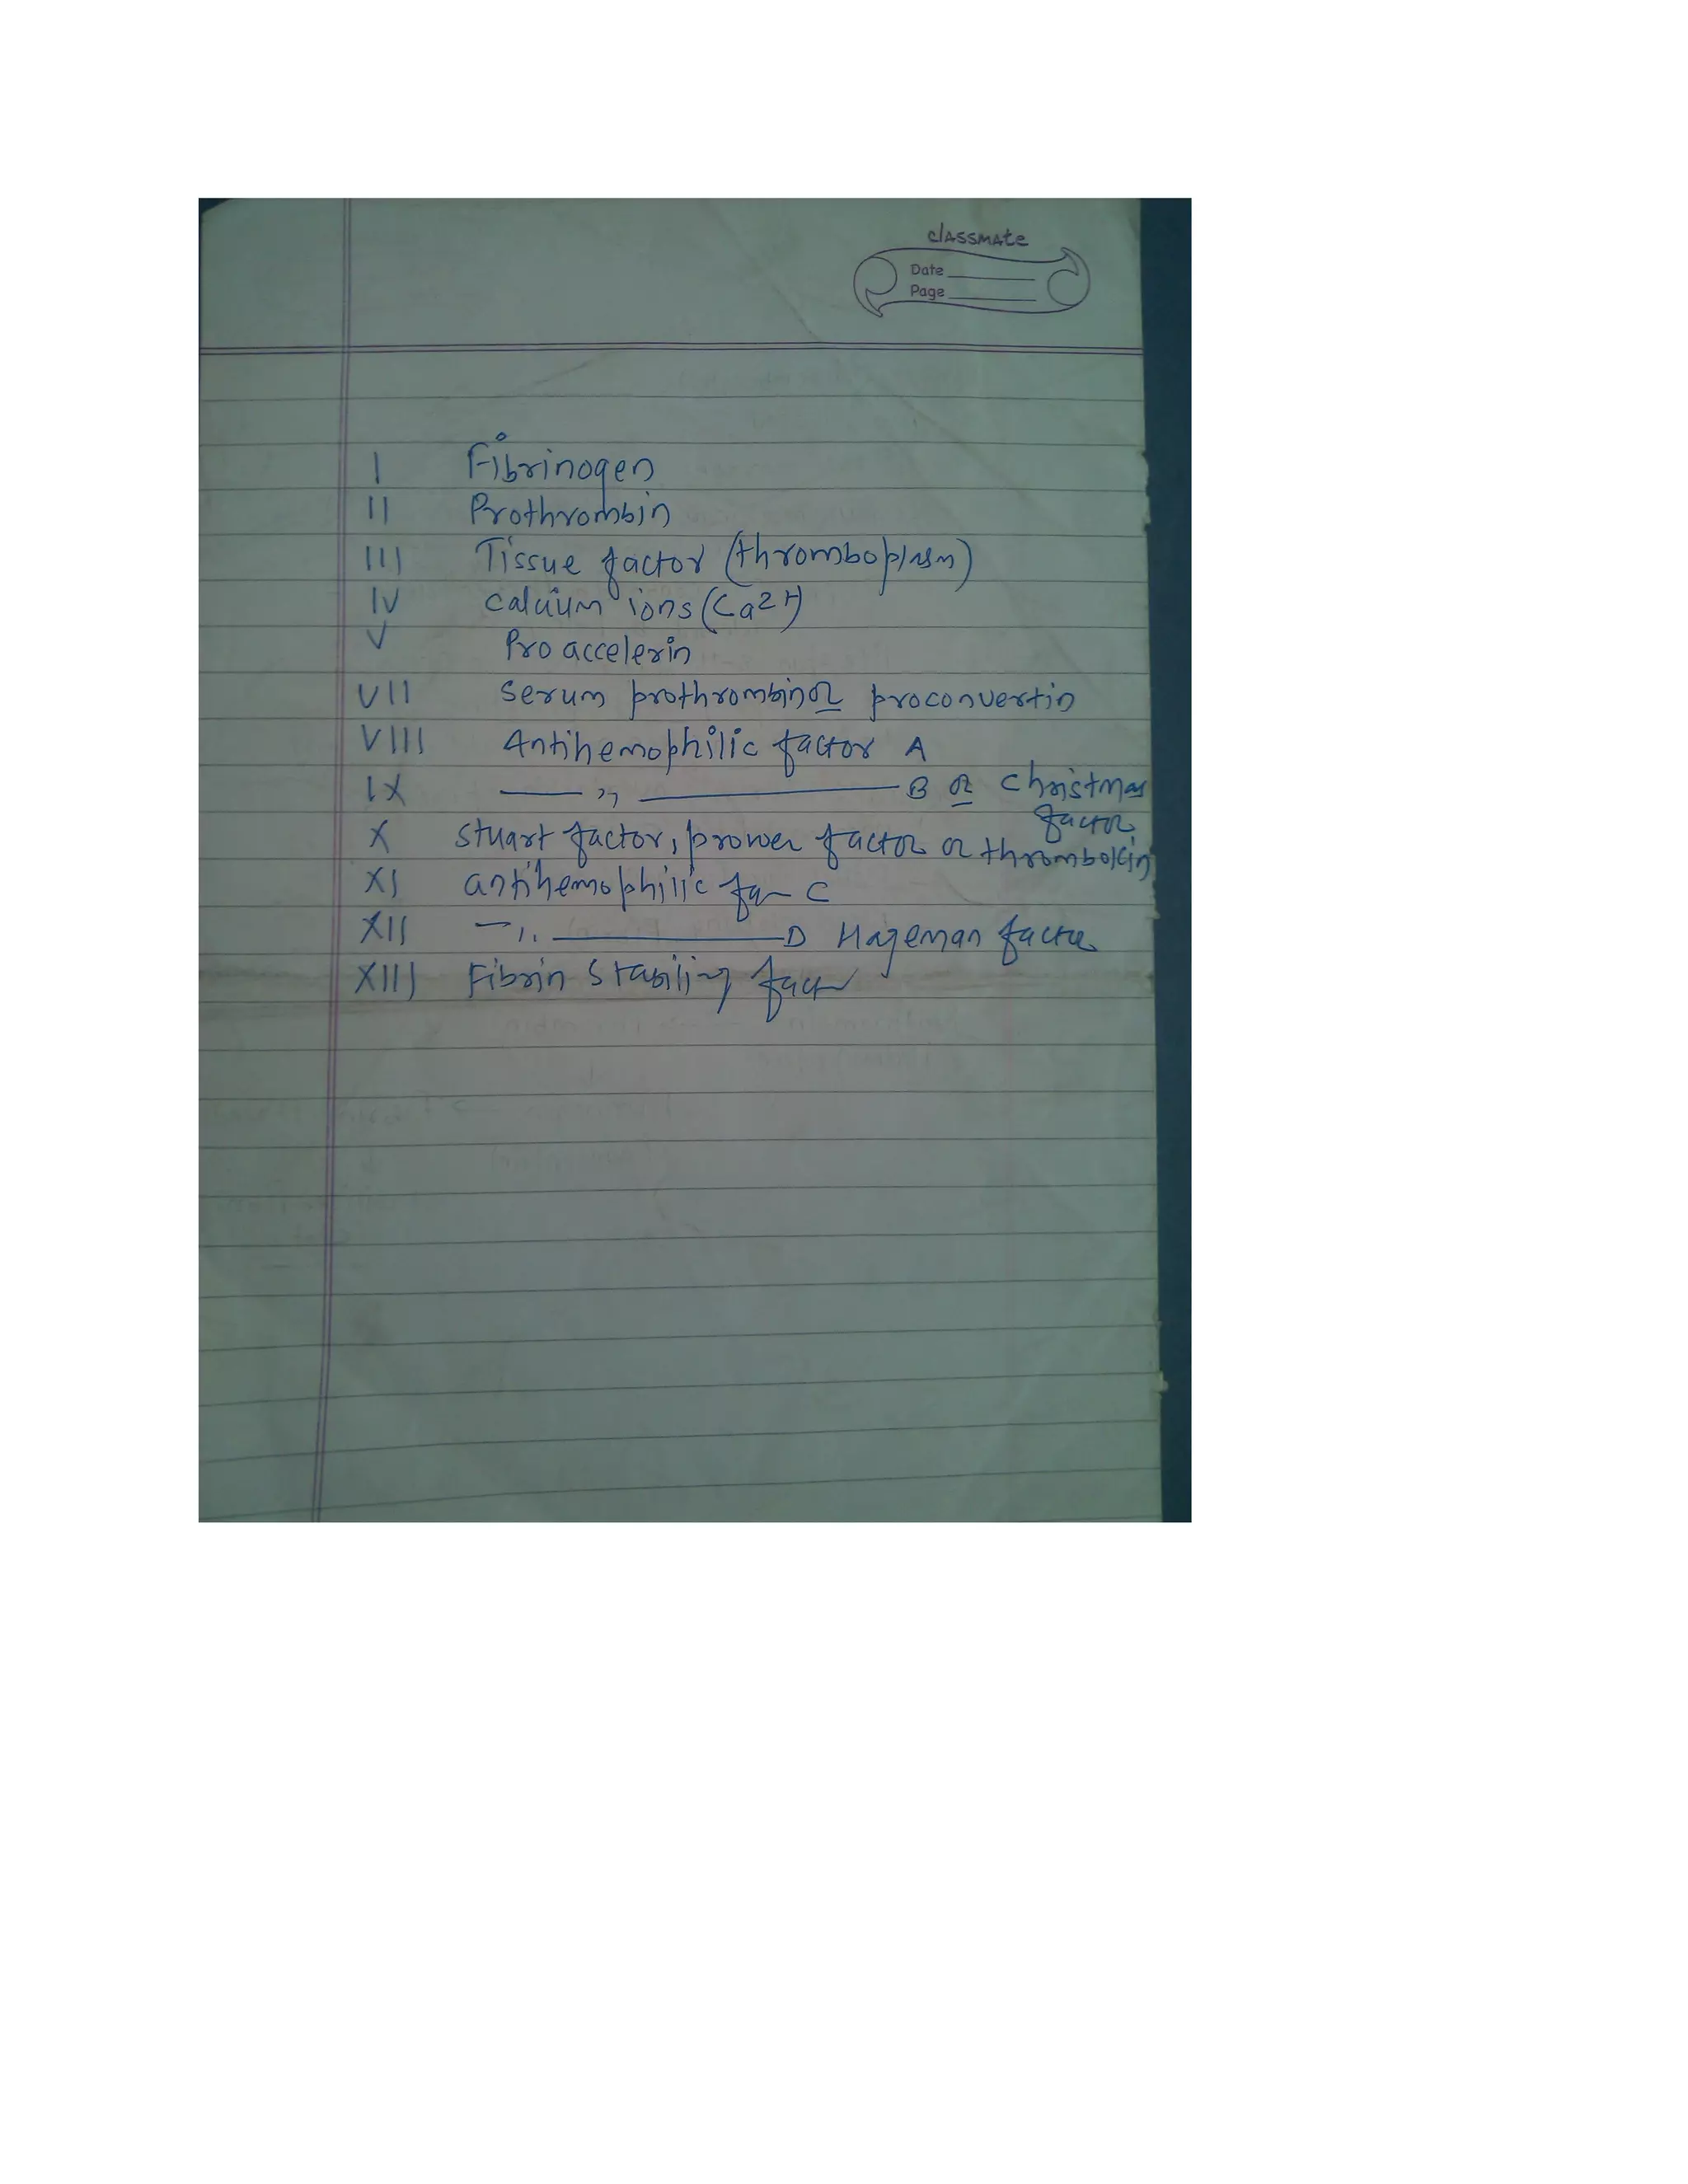 classmate
Date
Page
I Fibrinogen
II Prothrombin
III Tissue factor (thromboplasm)
IV Calcium ions (Ca2+)
V Pro accelerin
VII Serum prothrombin or proconvertin
VIII Antihemophilic factor A
IX —— ,, —————— B or Christmas
factor
X Stuart factor, prower factor or thrombokin
XI antihemophilic fa C
XII — ,, —————— D Hageman factor
XIII Fibrin Stabiling factor